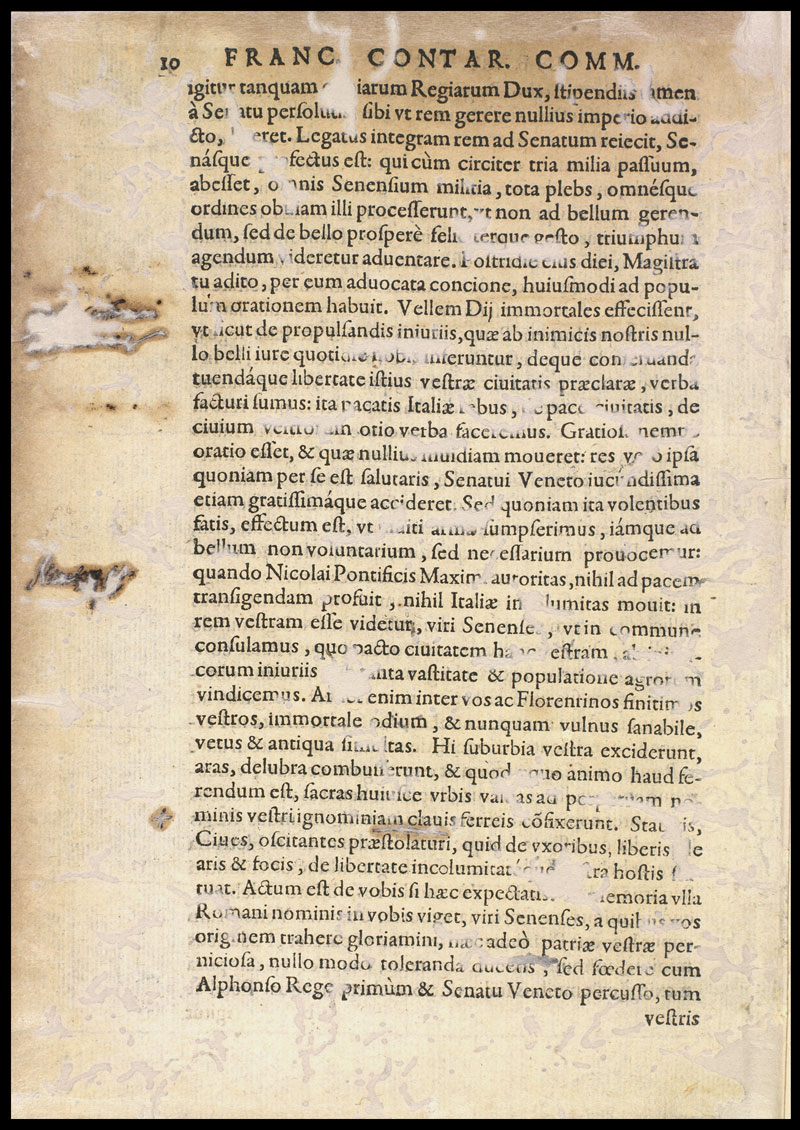 10 FRANC. CONTAR. COMM.
igitur tanquam iarum Regiarum Dux, ſtipendiis
à Senatu perſolutis ſibi vt rem gerere nullius imperio addi-
cto, Legatus integram rem ad Senatum reiecit, Se-
náſque eſt: qui cùm circiter tria milia paſſuum,
abeſſet, omnis Senenſium militia, tota plebs, omnéſque
ordines obuiam illi proceſſerunt, vt non ad bellum geren-
dum, ſed de bello proſperè geſto, triumphum
agendum videretur aduentare. Poſtridie eius diei, Magiſtra
tu adito, per eum aduocata concione, huiuſmodi ad popu-
lum orationem habuit. Vellem Dij immortales effeciſſent,
vt ſicut de propulſandis iniuriis, quæ ab inimicis noſtris nul-
lo belli iure quotidie nobis inferuntur, deque
tuendáque libertate iſtius veſtræ ciuitatis præclaræ, verba
facturi ſumus: ita pacatis Italiæ rebus, de pace ciuitatis, de
ciuium otio verba faceremus.
oratio eſſet, & quæ nullius inuidiam moueret: res ipſa
quoniam per ſe eſt ſalutaris, Senatui Veneto iucundiſſima
etiam gratiſſimáque accideret. Sed quoniam ita volentibus
fatis, effectum eſt, vt arma ſumpſerimus, iámque ad
bellum non voluntarium, ſed neceſſarium prouocemur:
quando Nicolai Pontificis Maximi autoritas, nihil ad pacem
tranſigendam profuit, nihil Italiæ incolumitas mouit: in
rem veſtram eſſe videtur, viri Senenſes, vt in commune
conſulamus, quo pacto ciuitatem hanc veſtram
corum iniuriis vaſtitate & populatione agrorum
vindicemus. enim inter vos ac Florentinos finitimos
veſtros, immortale odium, & nunquam vulnus ſanabile,
vetus & antiqua ſimultas. Hi ſuburbia veſtra exciderunt,
aras, delubra combuſſerunt, & quod æquo animo haud fe-
rendum eſt, ſacras huiuſce vrbis ad
minis veſtri ignominiam clauis ferreis cõfixerunt.
Ciues, oſcitantes præſtolaturi, quid de vxoribus, liberis de
aris & focis, de libertate hoſtis
tuat. Actum eſt de vobis ſi hæc memoria vlla
Romani nominis in vobis viget, viri Senenſes, a quibus vos
originem trahere gloriamini, adeò patriæ veſtræ per-
nicioſa, nullo modo toleranda ducetis, ſed fœdere cum
Alphonſo Rege primùm & Senatu Veneto percuſſo, tum
veſtris